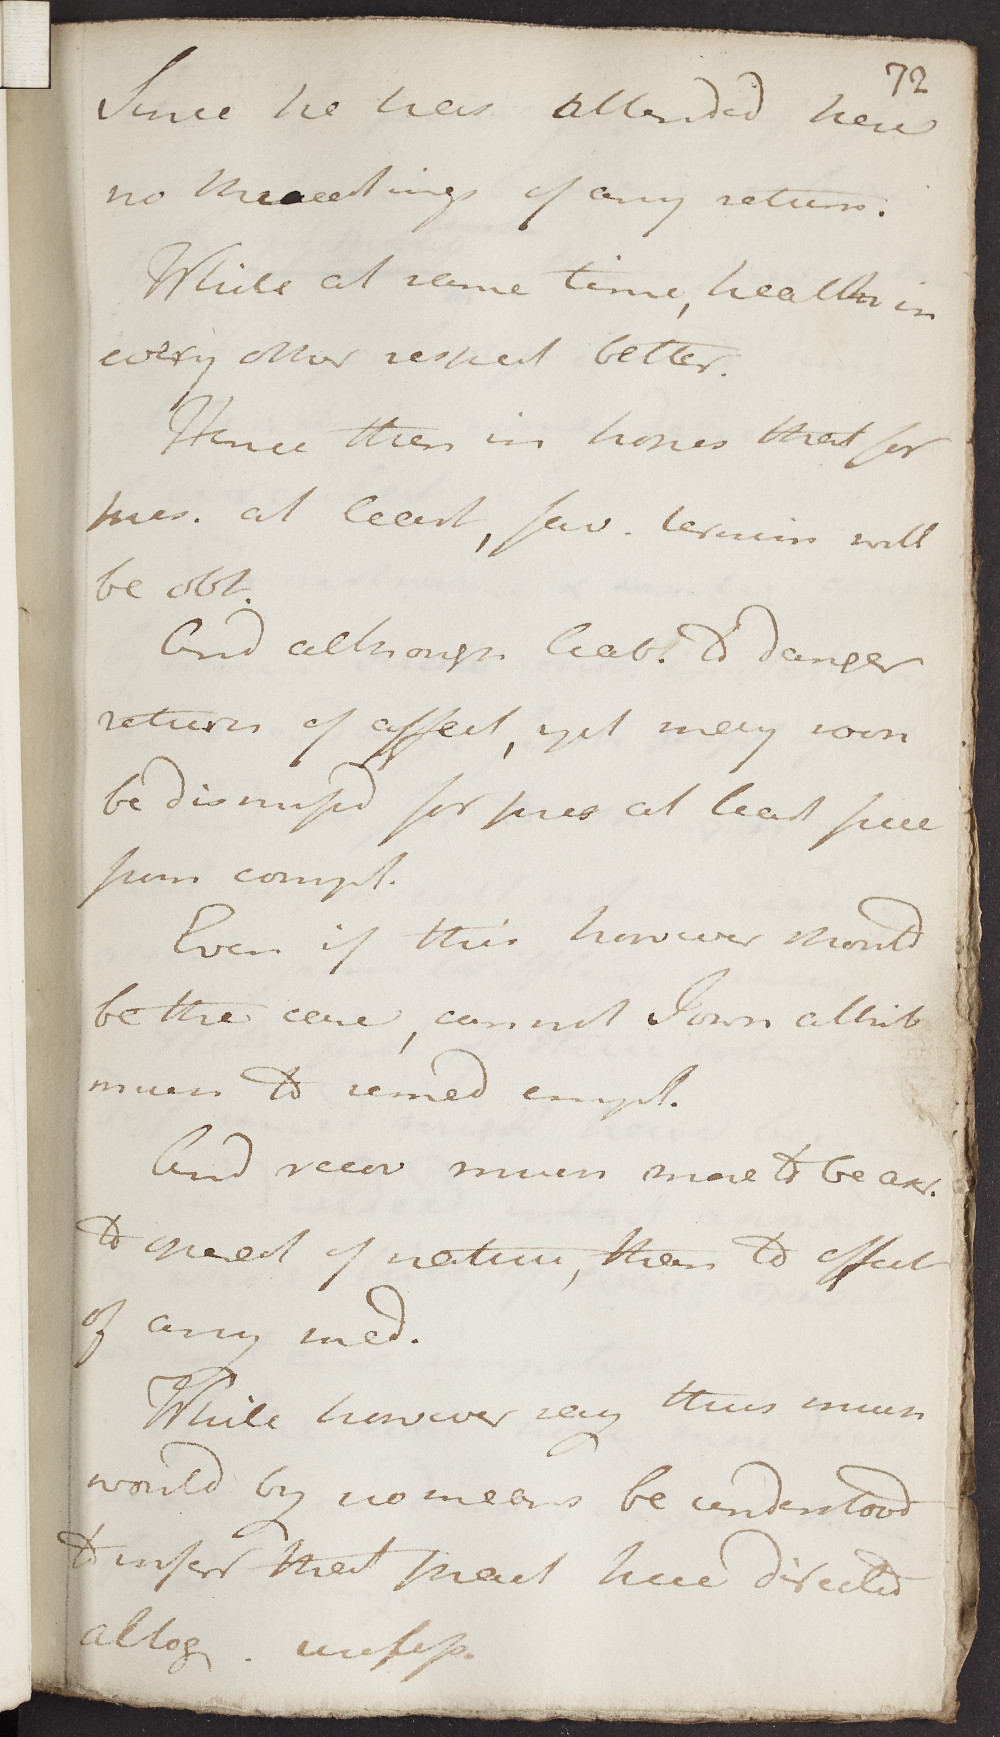 72
Since he has attended here
no threatnings of any return.
While at same time, health in
every other respect better.
Hence then in hopes that for
pres. at least, fav. termin will
be obt.
And although liab. to danger
return of affect, yet may soon
be dismissd for pres at least free
from compl.
Even if this however should
be the case, cannot I own attrib
much to remed empl.
And recov much more to be asr.
to operat of nature, than to effect
of any med.
While however say thus much
would by no means be understood
to infer that pract here directed
altog. unsucc.